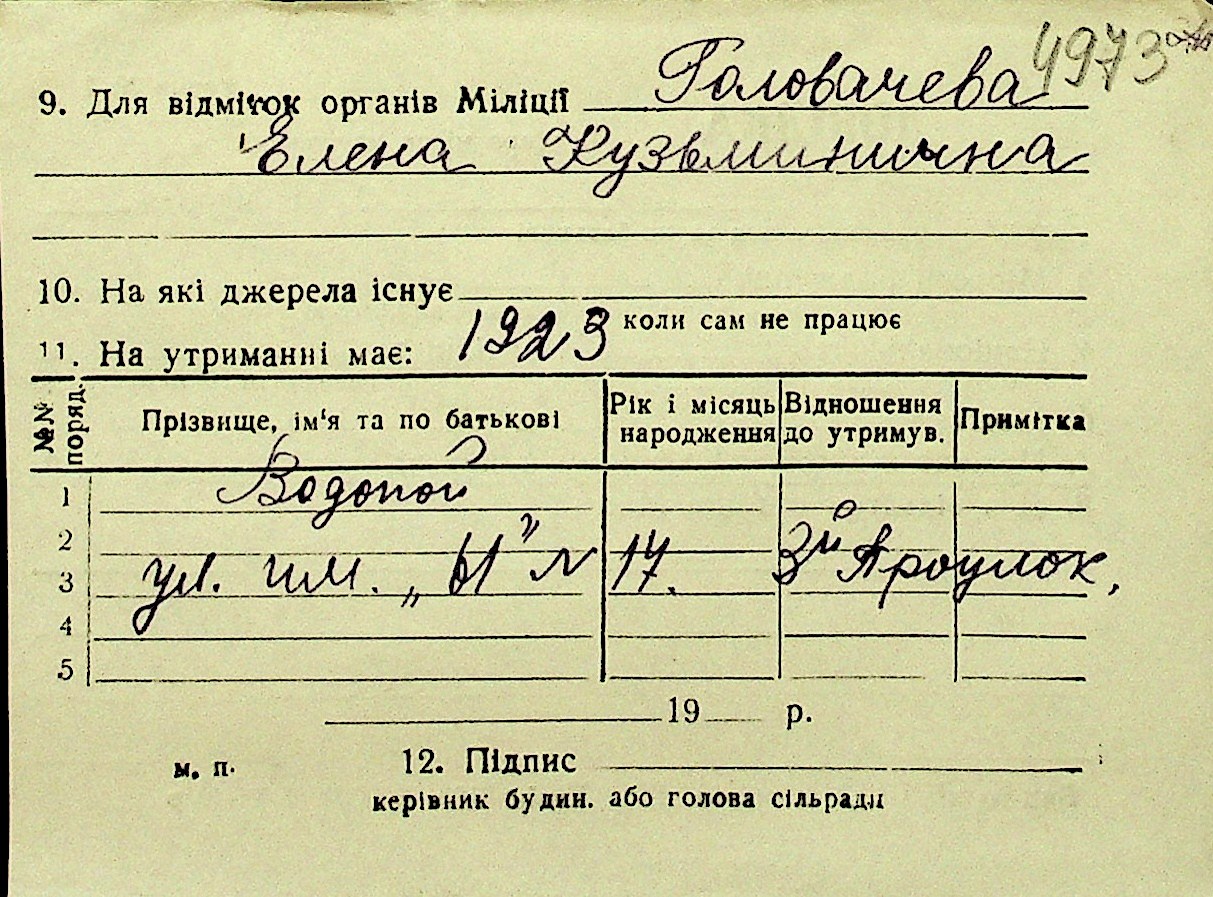 4973
9. Для відміток органів Міліції Головачева
Елена Кузьминична
10. На які джерела існує
коли сам не працює
11. На утриманні має: 1923
№№ поряд. Прізвище, ім'я та по батькові Рік і місяць народження Відношення до утримув. Примітка
1 Водопой
2
3 ул. им. „Ы” № 17. 3й Проулок,
4
5
19 р.
м. п. 12. Підпис
керівник будин. або голова сільради